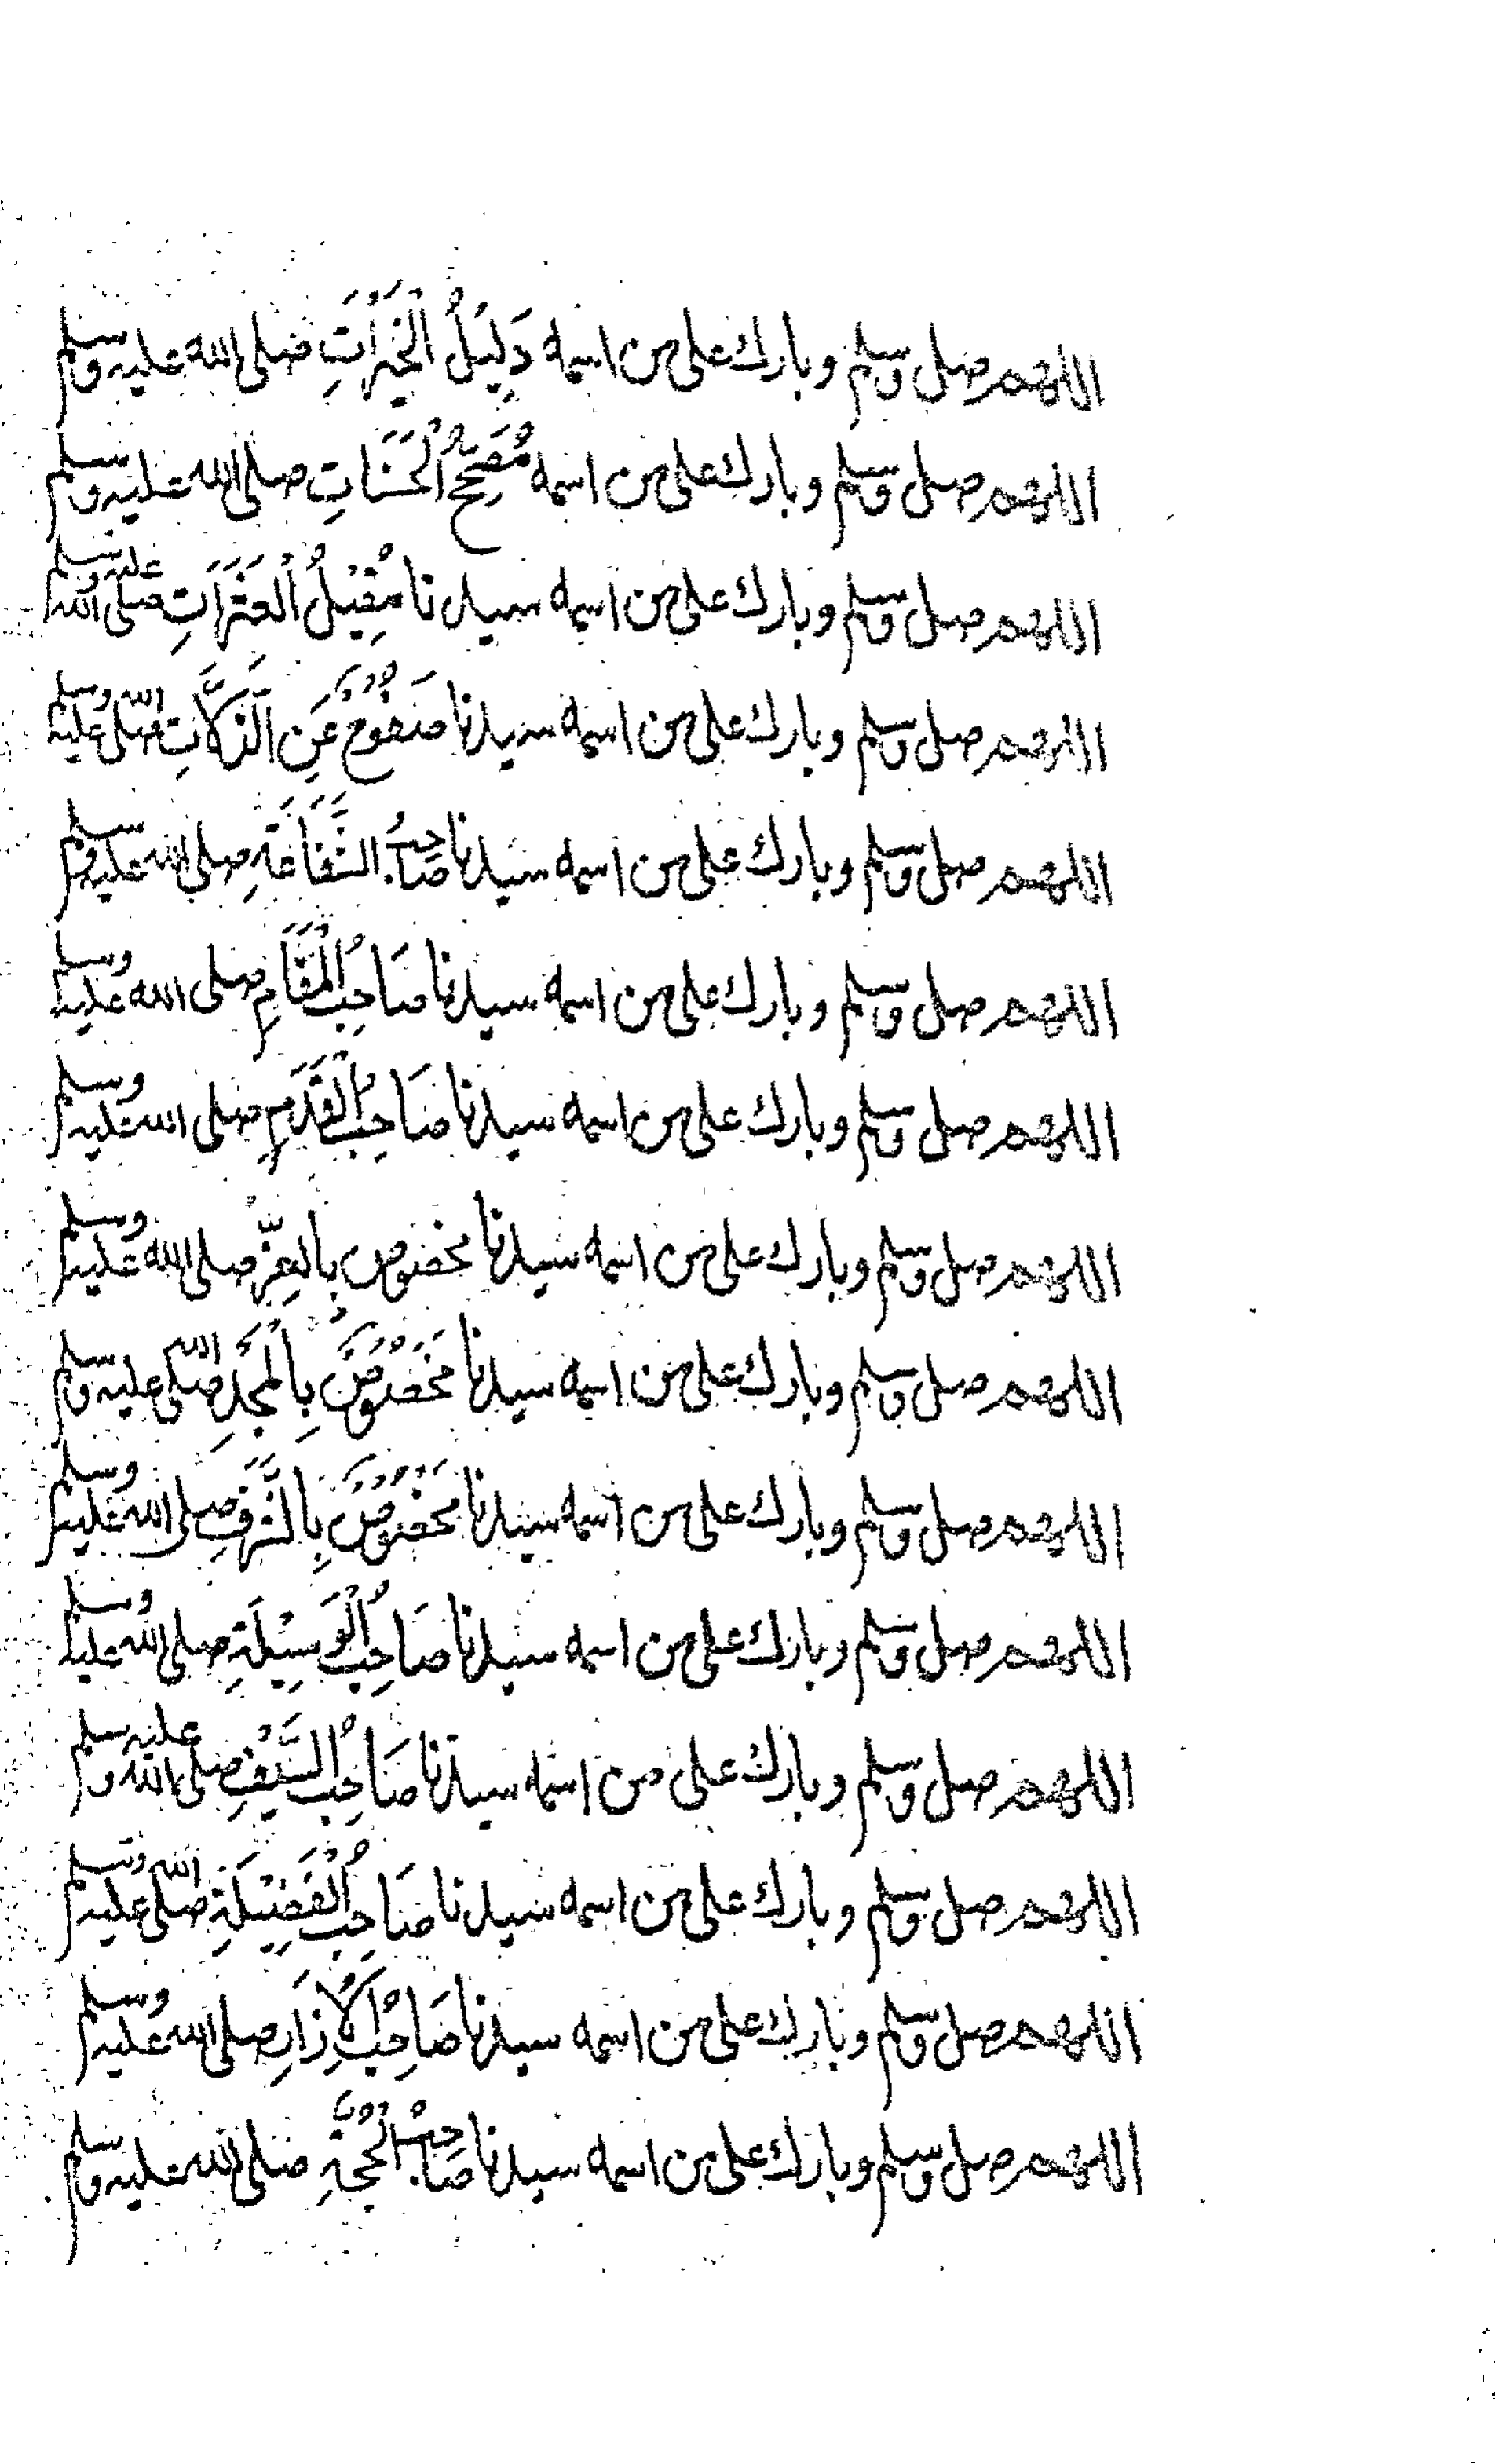 اللهم صل وسلم وبارك على من اسمه دَلِيلُ الْخَيْرَاتِ صلى الله عليه وسلم
اللهم صل وسلم وبارك على من اسمه مُصَحِّحُ الْحَسَنَاتِ صلى الله عليه وسلم
اللهم صل وسلم وبارك على من اسمه سيدنا مُقِيْلُ الْعَثَرَاتِ صلى الله عليه وسلم
اللهم صل وسلم وبارك على من اسمه سيدنا صَفُوْحٌ عَنِ الزَّلَّاتِ صلى الله عليه وسلم
اللهم صل وسلم وبارك على من اسمه سيدنا صَاحِبُ الشَّفَاعَةِ صلى الله عليه وسلم
اللهم صل وسلم وبارك على من اسمه سيدنا صَاحِبُ الْمَقَامِ صلى الله عليه وسلم
اللهم صل وسلم وبارك على من اسمه سيدنا صَاحِبُ الْقَدَمِ صلى الله عليه وسلم
اللهم صل وسلم وبارك على من اسمه سيدنا مخصوص بِالْعِزِّ صلى الله عليه وسلم
اللهم صل وسلم وبارك على من اسمه سيدنا مَخْصُوْصٌ بِالْمَجْدِ صلى الله عليه وسلم
اللهم صل وسلم وبارك على من اسمه سيدنا مَخْصُوْصٌ بِالشَّرَفِ صلى الله عليه وسلم
اللهم صل وسلم وبارك على من اسمه سيدنا صَاحِبُ الْوَسِيْلَةِ صلى الله عليه وسلم
اللهم صل وسلم وبارك على من اسمه سيدنا صَاحِبُ السَّيْفِ صلى الله عليه وسلم
اللهم صل وسلم وبارك على من اسمه سيدنا صَاحِبُ الْفَضِيْلَةِ صلى الله عليه وسلم
اللهم صل وسلم وبارك على من اسمه سيدنا صَاحِبُ الْاِزَارِ صلى الله عليه وسلم
اللهم صل وسلم وبارك على من اسمه سيدنا صَاحِبُ الْحُجَّةِ صلى الله عليه وسلم